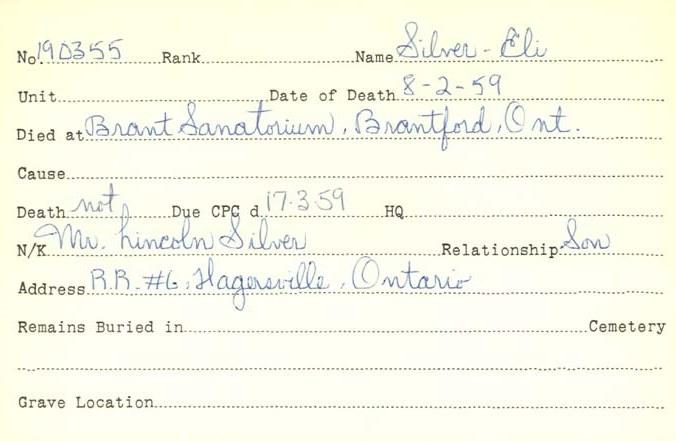 No. 190355 Rank Name Silver - Eli
Unit Date of Death 8-2-59
Died at Brant Sanatorium, Brantford, Ont.
Cause
Death not Due CPC d 17.3.59 HQ
N/K Mr. Lincoln Silver Relationship Son
Address R.R. #6, Hagersville, Ontario
Remains Buried in Cemetery
Grave Location